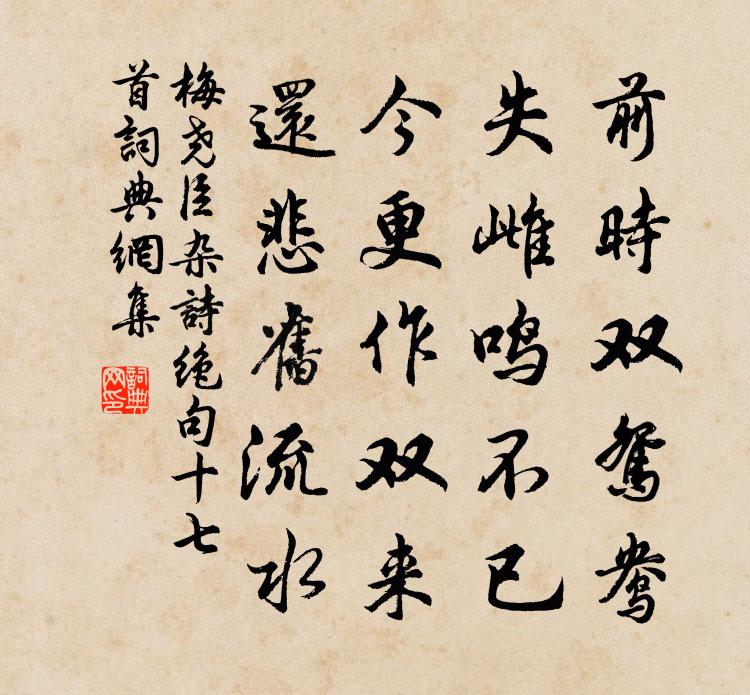 前時双鴛鴦
失雌鸣不已
今更作双来
還悲舊流水
梅尧臣杂詩绝句十七
首詞典網集
詞典
网印